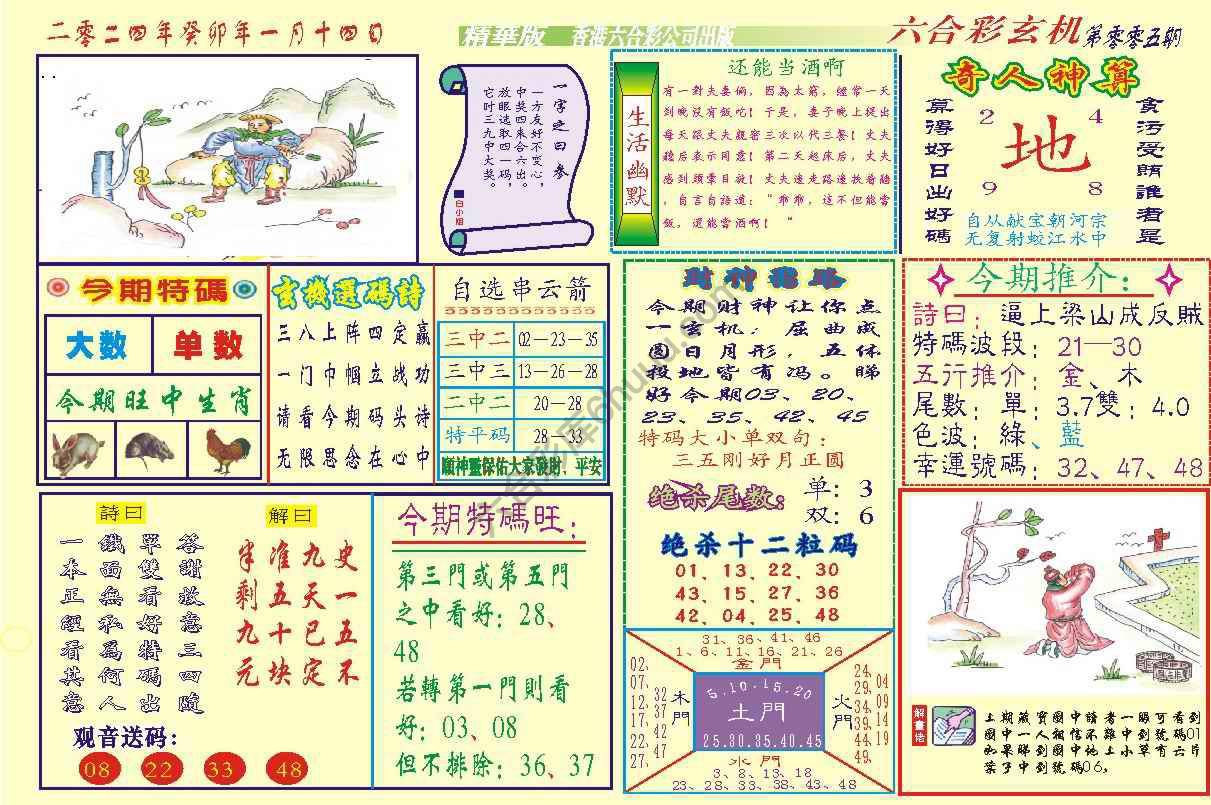 二零二四年癸卯年一月十四日
精華版 香港六合彩公司出版
六合彩玄机 第零零五期
一字之曰参
一方友好不变心，
中奖四来合六出。
放眼选取四一码，
它叶三九中大奖。
白小姐
生活幽默
还能当酒啊
有一對夫妻倆，因為太窮，經常一天
到晚沒有飯吃！于是，妻子晚上提出
每天跟丈夫親密三次以代三餐！丈夫
聽后表示同意！第二天起床后，丈夫
感到頭暈目眩！丈夫遠走路遠扶着牆
，自言自語道：“乖乖，這不但能當
飯，還能當酒啊！“
奇人神算
算得好日出好碼
2 4
地
9 8
貪污受賄誰者是
自从献宝朝河宗
无复射蛟江水中
今期特碼
大数 单数
今期旺中生肖
玄機選碼詩
三八上阵四定赢
一门巾帼立战功
请看今期码头诗
无限思念在心中
自选串云箭
三中二 02—23—35
三中三 13—26—28
二中二 20—28
特平码 28—33
願神靈保佑大家發財，平安
財神
今期财神让你点
一玄机：屈曲成
圆日月形，五体
投地皆有冯。睇
好今期03、20、
23、35、42、45
特码大小单双句：
三五刚好月正圆
绝杀尾数：
单：3
双：6
绝杀十二粒码
01、13、22、30
43、15、27、36
42、04、25、48
今期推介：
詩曰：逼上梁山成反贼
特碼波段：21—30
五行推介：金、木
尾數：單：3.7雙：4.0
色波：綠、藍
幸運號碼：32、47、48
詩曰
一本正經看其意
鐵面無私為何人
單雙看好特碼出
答謝救意三四隨
解曰
半准九史
剩五天一
九十已五
元块定不
观音送码：
08 22 33 48
今期特碼旺：
第三門或第五門
之中看好：28、
48
若轉第一門則看
好：03、08
但不排除：36、37
31、36、41、46
1、6、11、16、21、26
金門
02、
07、
12、
17、
22、
27、
32
37
42
47
木門
5.10.15.20
土門
25.30.35.40.45
火門
24、
29、
34、
39、
44、
49、
04
09
14
19
水門
3、8、13、18
23、28、33、38、43、48
解畫佬
上期藏寶圖中請者一眼可看到
圖中一人相信不難中到號碼01
如果睇到圖中地上小草有六片
葉子中到號碼06，
六合彩库6huuu.com